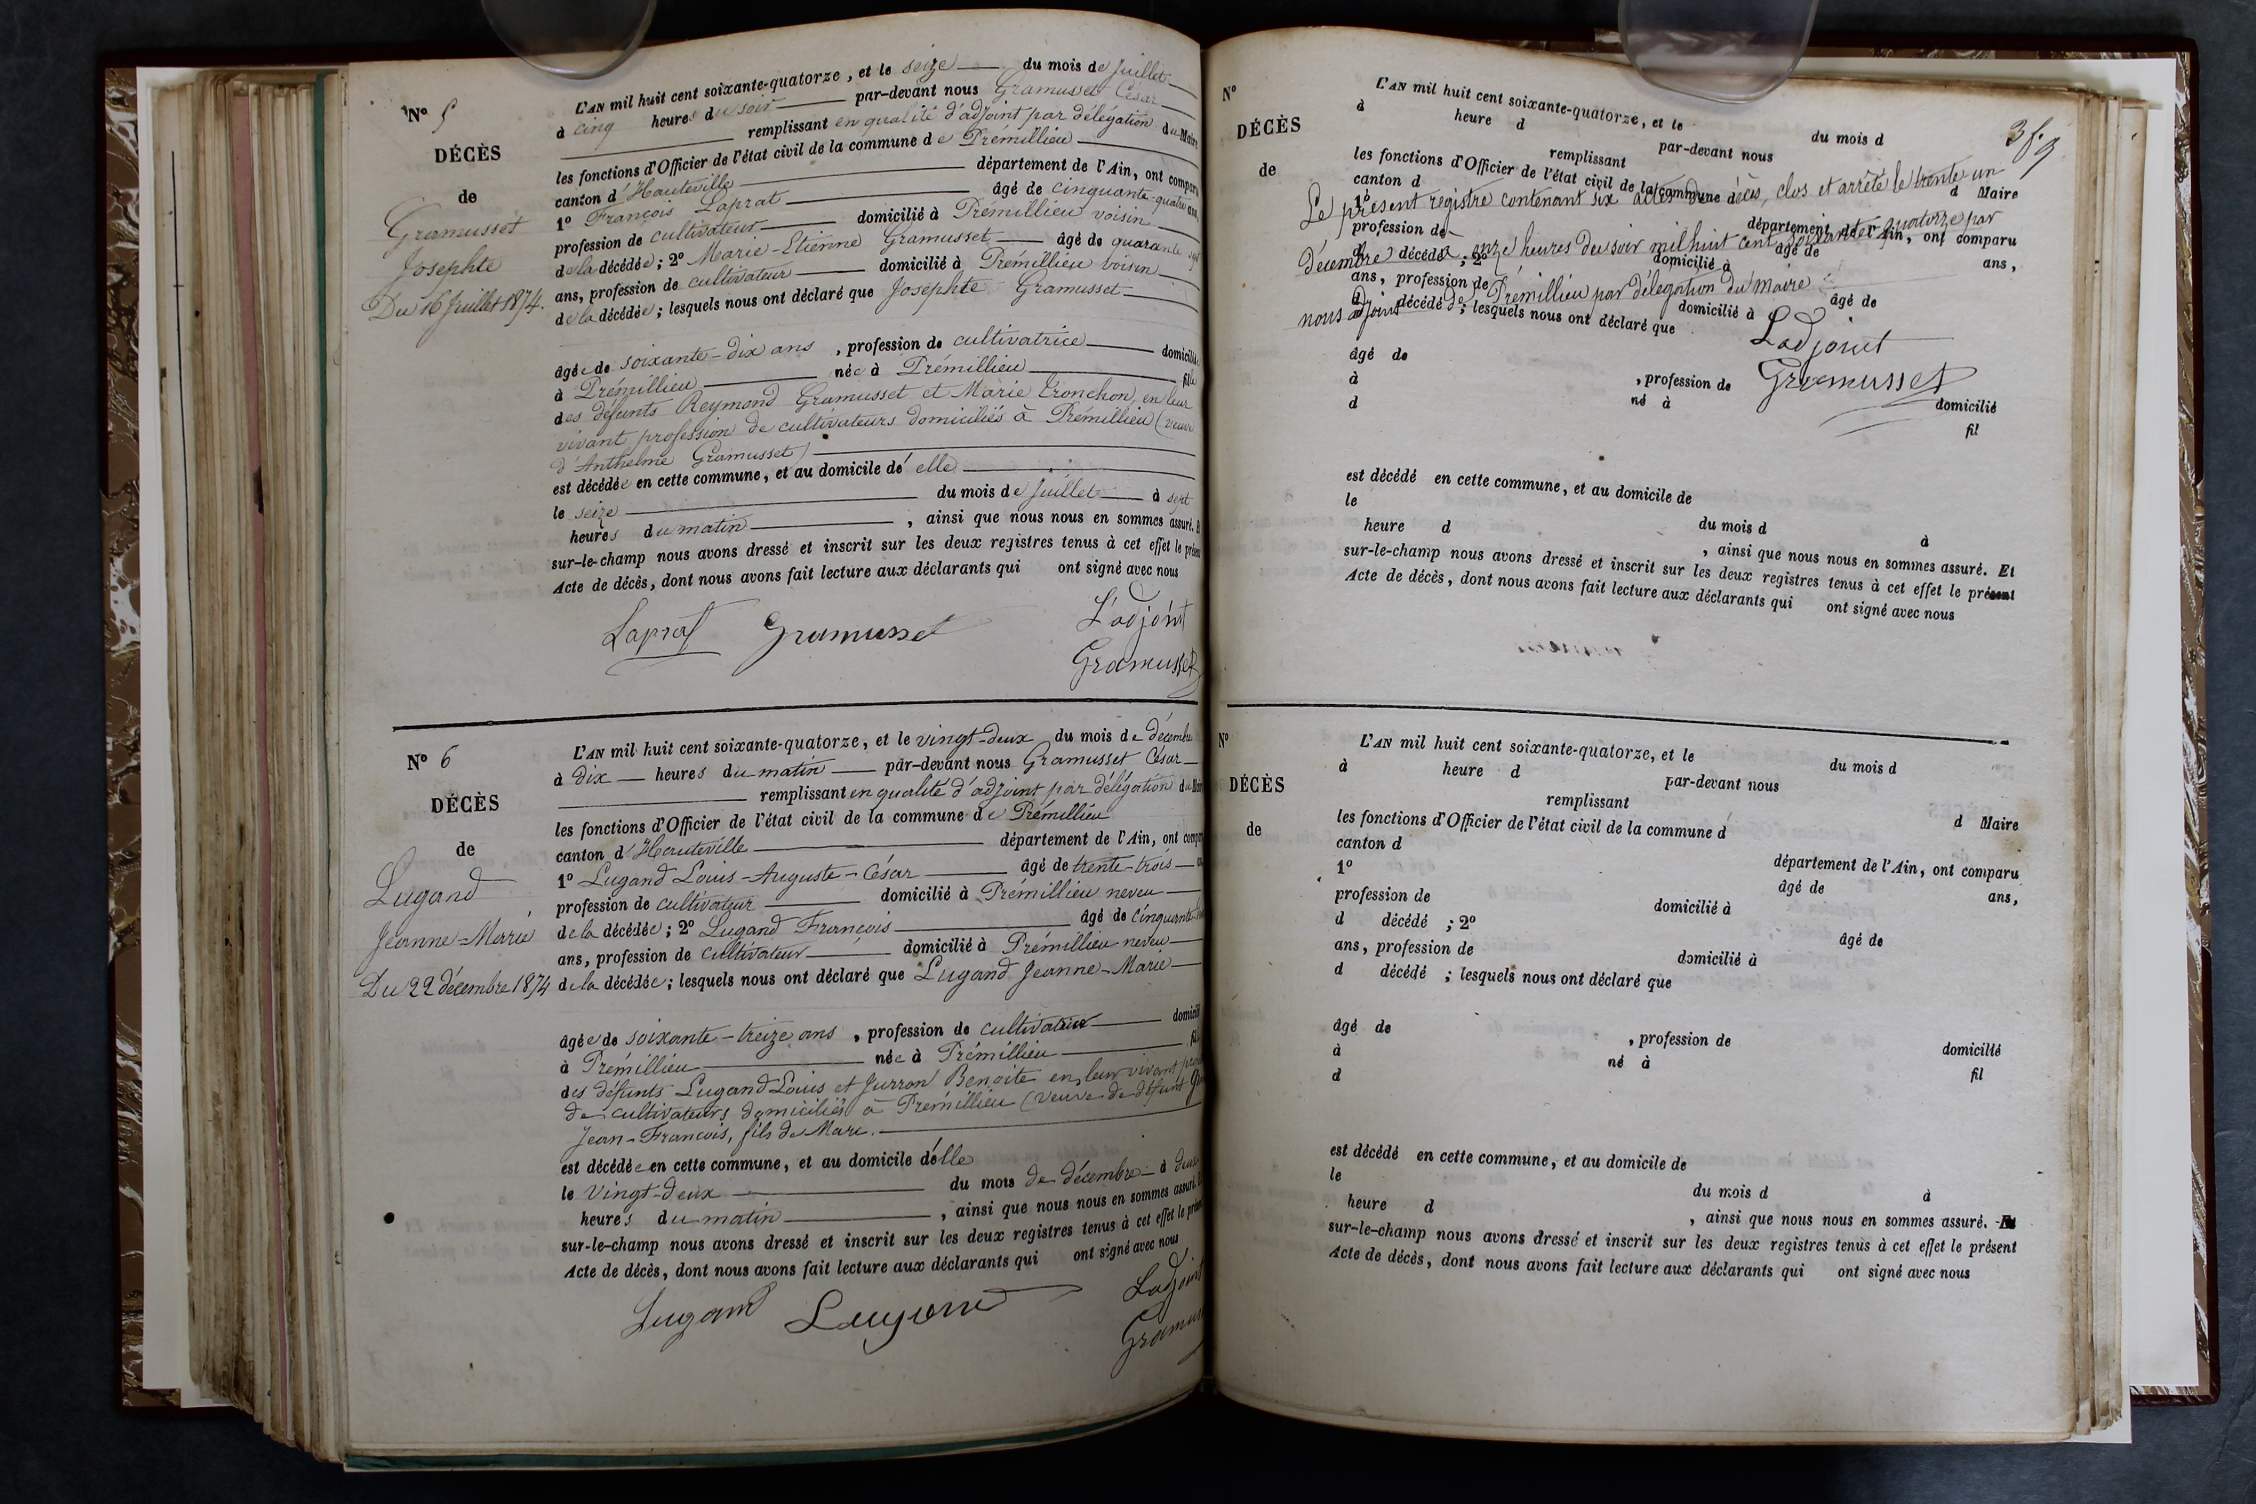 N° 5
DÉCÈS
de
Gramusset
Josephte
Du 16 Juillet 1874.
L'AN mil huit cent soixante-quatorze, et le seize du mois de Juillet
à cinq heures du soir par-devant nous Gramusset César
remplissant en qualité d'adjoint par délégation du Maire
les fonctions d'Officier de l'état civil de la commune de Prémillieu
canton d'Hauteville département de l'Ain, ont comparu
1° François Laprat âgé de cinquante-quatre ans,
profession de cultivateur domicilié à Prémillieu voisin
de la décédée; 2° Marie-Etienne Gramusset âgé de quarante sept
ans, profession de cultivateur domicilié à Prémillieu voisin
de la décédée; lesquels nous ont déclaré que Josephte Gramusset
âgée de soixante-dix ans, profession de cultivatrice domiciliée
à Prémillieu née à Prémillieu fille
des défunts Reymond Gramusset et Marie Tronchon, en leur
vivant profession de cultivateurs domiciliés à Prémillieu (veuve
d'Anthelme Gramusset)
est décédée en cette commune, et au domicile d'elle
le seize du mois de Juillet à sept
heures du matin, ainsi que nous nous en sommes assuré. Et
sur-le-champ nous avons dressé et inscrit sur les deux registres tenus à cet effet le présent
Acte de décès, dont nous avons fait lecture aux déclarants qui ont signé avec nous
Laprat Gramusset L'adjoint
Gramusset
N° 6
DÉCÈS
de
Lugand
Jeanne-Marie
Du 22 décembre 1874
L'AN mil huit cent soixante-quatorze, et le vingt-deux du mois de décembre
à dix heures du matin par-devant nous Gramusset César
remplissant en qualité d'adjoint par délégation du Maire
les fonctions d'Officier de l'état civil de la commune de Prémillieu
canton d'Hauteville département de l'Ain, ont comparu
1° Lugand Louis-Auguste-César âgé de trente-trois ans
profession de cultivateur domicilié à Prémillieu neveu
de la décédée; 2° Lugand François âgé de cinquante
ans, profession de cultivateur domicilié à Prémillieu neveu
de la décédée; lesquels nous ont déclaré que Lugand Jeanne-Marie
âgée de soixante-treize ans, profession de cultivatrice domicilié
à Prémillieu née à Prémillieu fille
des défunts Lugand Louis et Jurron Benoite en leur vivant prof
de cultivateurs domiciliés à Prémillieu (veuve de défunt
Jean-Francois, fils de Marc.
est décédée en cette commune, et au domicile d'elle
le Vingt-deux du mois de décembre à deux
heures du matin, ainsi que nous nous en sommes assuré. Et
sur-le-champ nous avons dressé et inscrit sur les deux registres tenus à cet effet le présent
Acte de décès, dont nous avons fait lecture aux déclarants qui ont signé avec nous
Lugand Lugand Ladjoint
Gramusset
3 f. 9
N°
DÉCÈS
de
L'AN mil huit cent soixante-quatorze, et le du mois d
à heure d par-devant nous
remplissant d Maire
les fonctions d'Officier de l'état civil de la commune d
canton d département de l'Ain, ont comparu
1° âgé de ans,
profession de domicilié à
d décédé ; 2° âgé de
ans, profession de domicilié à
d décédé ; lesquels nous ont déclaré que
Le présent registre contenant six actes de décès, clos et arrêté le trente un
décembre à onze heures du soir mil huit cent soixante quatorze par
nous adjoint de Prémillieu par délégation du maire
Ladjoint
Gramusset
âgé de , profession de domicilié
à né à fil
d
est décédé en cette commune, et au domicile de
le du mois d à
heure d , ainsi que nous nous en sommes assuré. Et
sur-le-champ nous avons dressé et inscrit sur les deux registres tenus à cet effet le présent
Acte de décès, dont nous avons fait lecture aux déclarants qui ont signé avec nous
N°
DÉCÈS
de
L'AN mil huit cent soixante-quatorze, et le du mois d
à heure d par-devant nous
remplissant d Maire
les fonctions d'Officier de l'état civil de la commune d
canton d département de l'Ain, ont comparu
1° âgé de ans,
profession de domicilié à
d décédé ; 2° âgé de
ans, profession de domicilié à
d décédé ; lesquels nous ont déclaré que
âgé de , profession de domicilié
à né à fil
d
est décédé en cette commune, et au domicile de
le du mois d à
heure d , ainsi que nous nous en sommes assuré. Et
sur-le-champ nous avons dressé et inscrit sur les deux registres tenus à cet effet le présent
Acte de décès, dont nous avons fait lecture aux déclarants qui ont signé avec nous